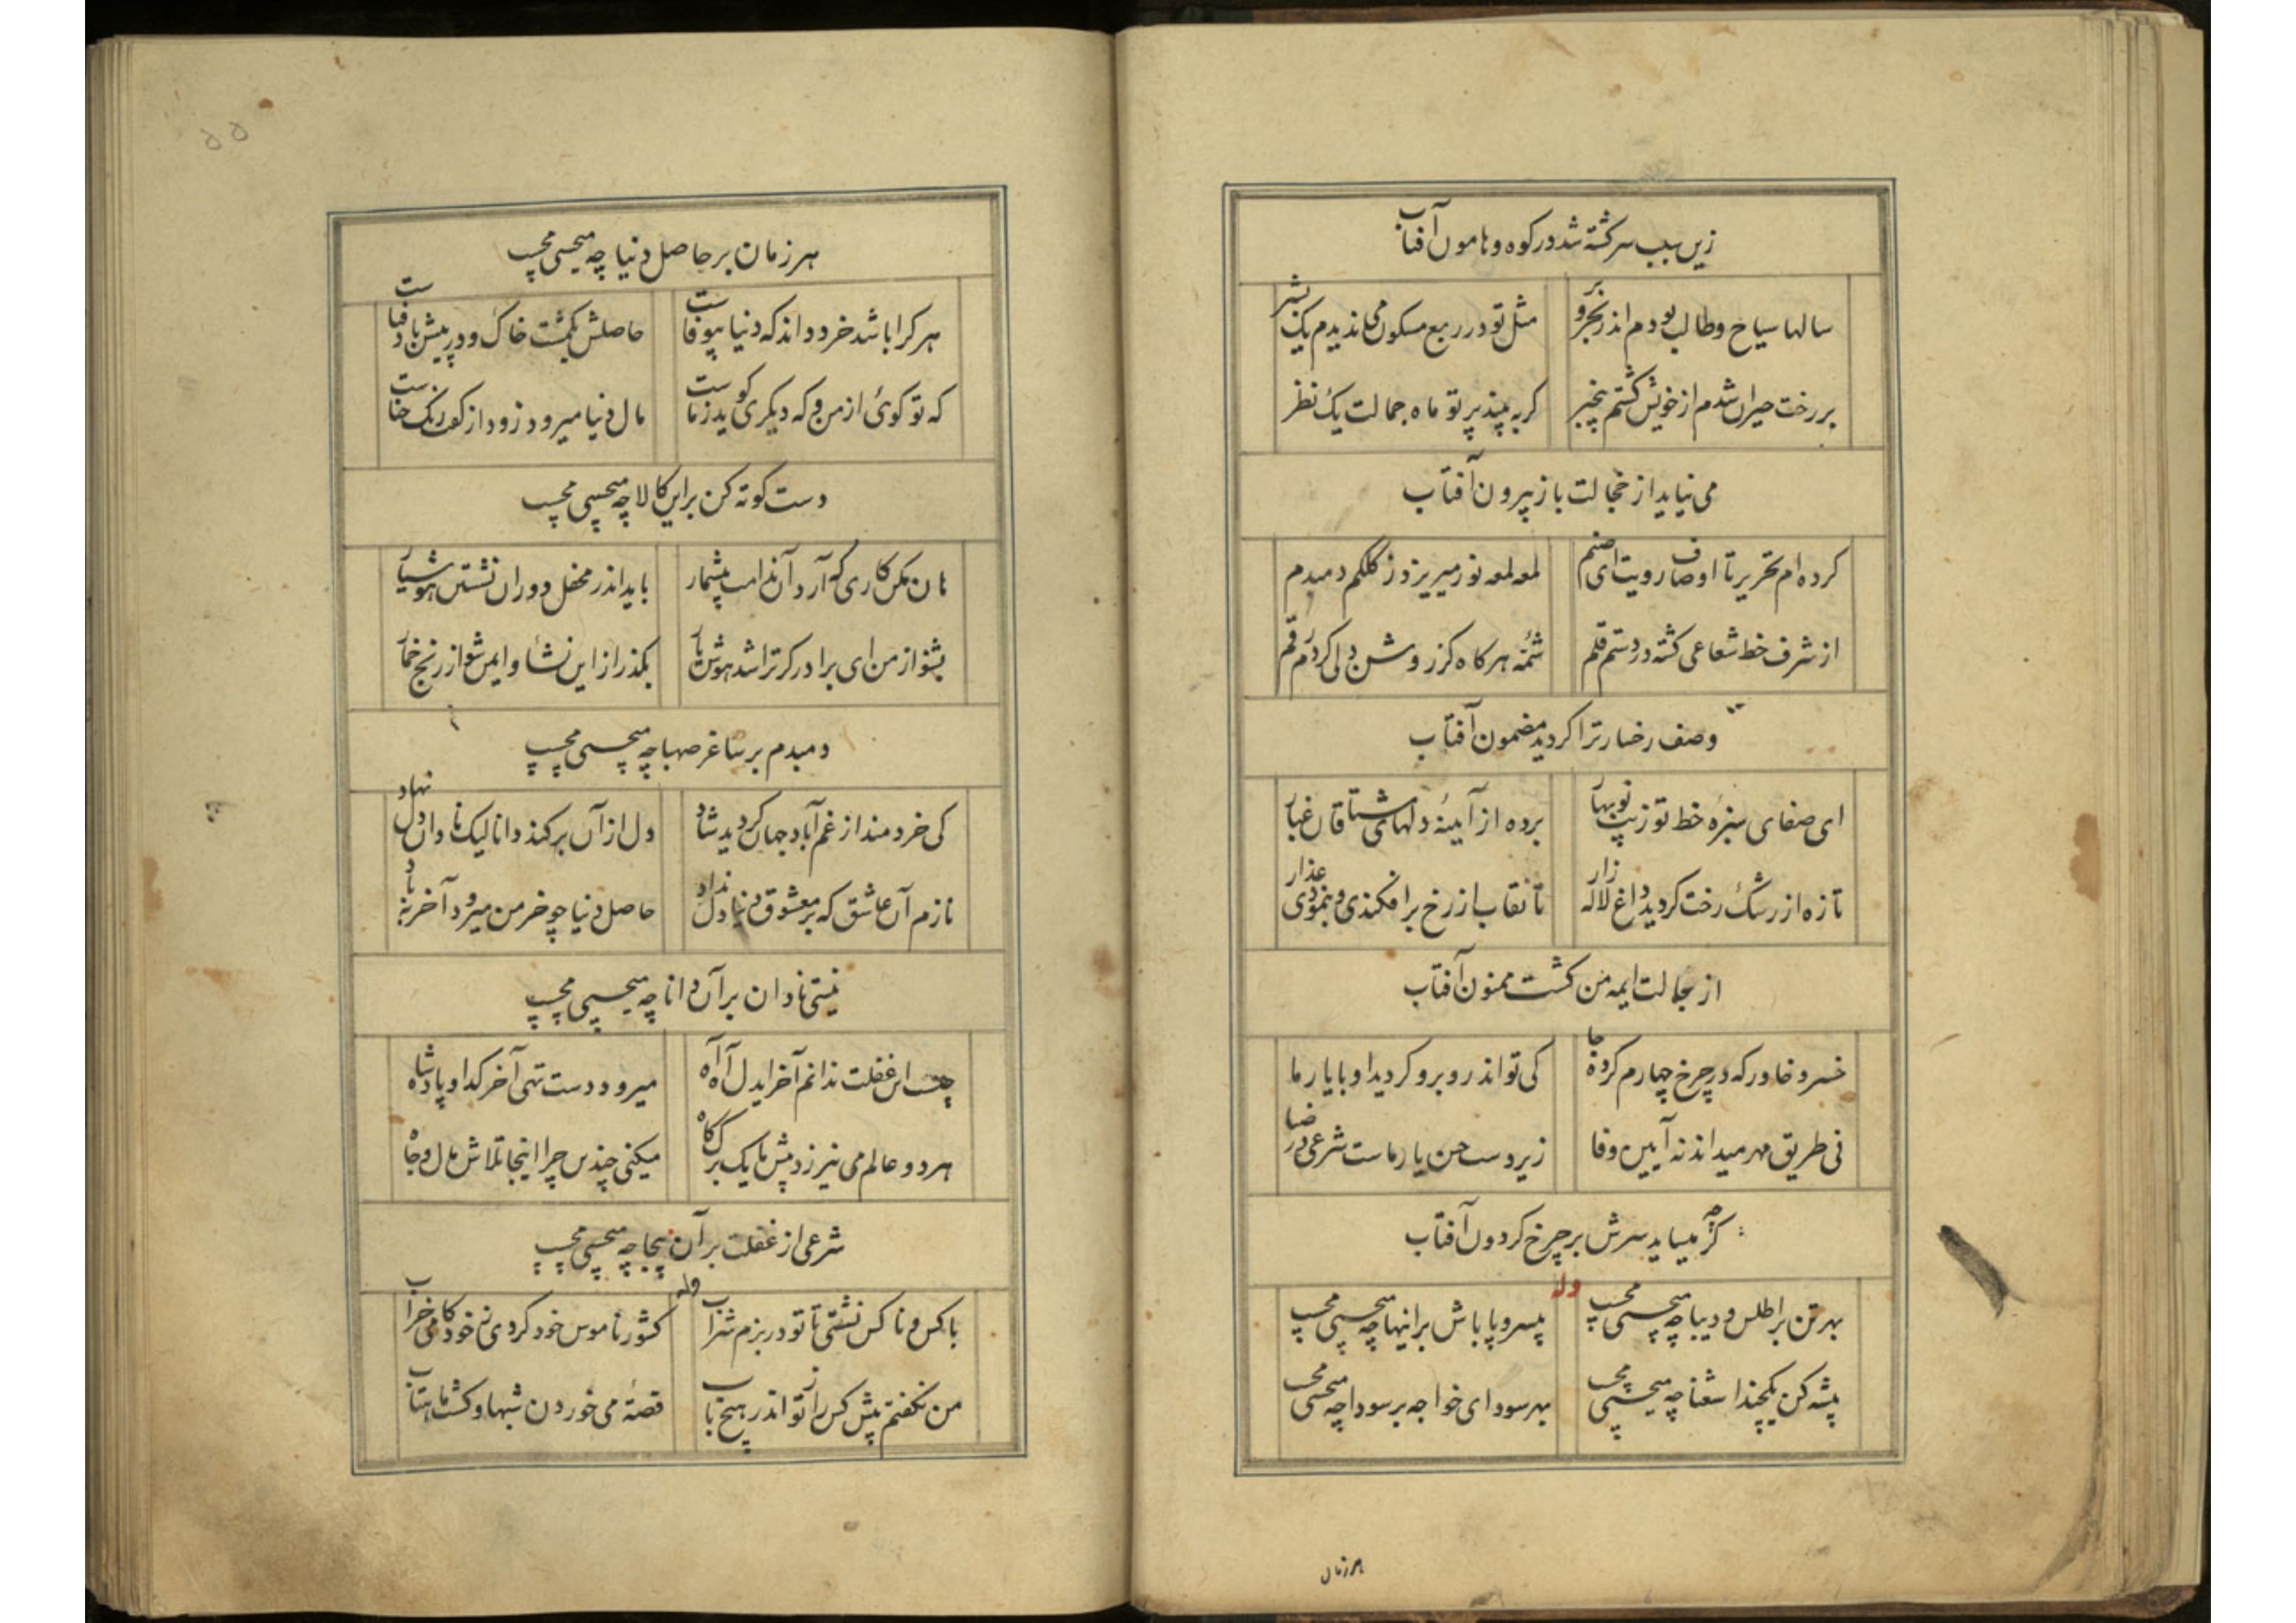 زین سبب سرگشته شد در کوه و هامون آفتاب
سالها سیاح و طالب بودم اندر بحر و بر
مثل تو در ربع مسکون می ندیدم یک بشر
بر رخت حیران شدم از خویش گشتم بیخبر
گر به بیند پرتو ماه جمالت یک نظر
می نیاید از خجالت باز بیرون آفتاب
کرده ام تحریر تا اوصاف رویت ای صنم
لمعه لمعه نور میریزد ز کلکم دمبدم
از شرف خط شعاعی گشته در دستم قلم
شمّهٔ هرگاه کز روشن دلی کردم رقم
وصف رخسار ترا گردید مضمون آفتاب
ای صفای سبزهٔ خط تو زیب نوبهار
برده از آیینهٔ دلهای مشتاقان غبار
تازه از رشک رخت گردید داغ لاله زار
تا نقاب از رخ برافکندی و بنمودی عذار
از جمالت ایمه من گشت ممنون آفتاب
خسرو خاور که در چرخ چهارم کرده جا
کی تواند روبرو گردید او با یار ما
نی طریق مهر میداند نه آیین وفا
زیر دست حسن یار ماست شرعی در ضیا
گرچه میساید سرش بر چرخ گردون آفتاب
وله
بهر تن بر اطلس و دیبا چه میچسپی مچسپ
بیسر و پا باش بر اینها چه میچسپی مچسپ
پیشه کن یکچند استغنا چه میچسپی مچسپ
بهر سود ای خواجه بر سودا چه میچسپی مچسپ
هر زمان
هر زمان بر حاصل دنیا چه میچسپی مچسپ
هر کرا باشد خرد داند که دنیا بیوفاست
حاصلش یکمشت خاک و در پیش باد فناست
که تو گوئی از من و که دیگری گوید ز ماست
مال دنیا میرود زود از کف رنگ حناست
دست کوته کن بر این کالا چه میچسپی مچسپ
هان مکن کاری که آرد آن ندامت بیشمار
باید اندر محفل دوران نشستن هوشیار
بشنو از من ای برادر گر ترا شد هوش یار
بگذر از این نشأ و ایمن شو از رنج خمار
دمبدم بر ساغر صهبا چه میچسپی مچسپ
کی خردمند از غم آباد جهان گردید شاد
دل از آن بر کند دانا لیک نادان دل نهاد
نازم آن عاشق که بر معشوق دنیا دل نداد
حاصل دنیا چو خرمن میرود آخر بباد
نیستی نادان بر آن دانا چه میچسپی مچسپ
چیست این غفلت ندانم آخر ایدل آه آه
میرود دست تهی آخر گدا و پادشاه
هر دو عالم می نیرزد پیش ما یک برگ کاه
میکنی چندین چرا اینجا تلاش مال و جاه
شرعی از غفلت بر آن بیجا چه میچسپی مچسپ
وله
با کس و ناکس نشستی تا تو در بزم شراب
کشور ناموس خود کردی ز خودکامی خراب
من نگفتم پیش کس راز تو اندر هیچ باب
قصهٔ می خوردن شبها و گشت ماهتاب
۵۵